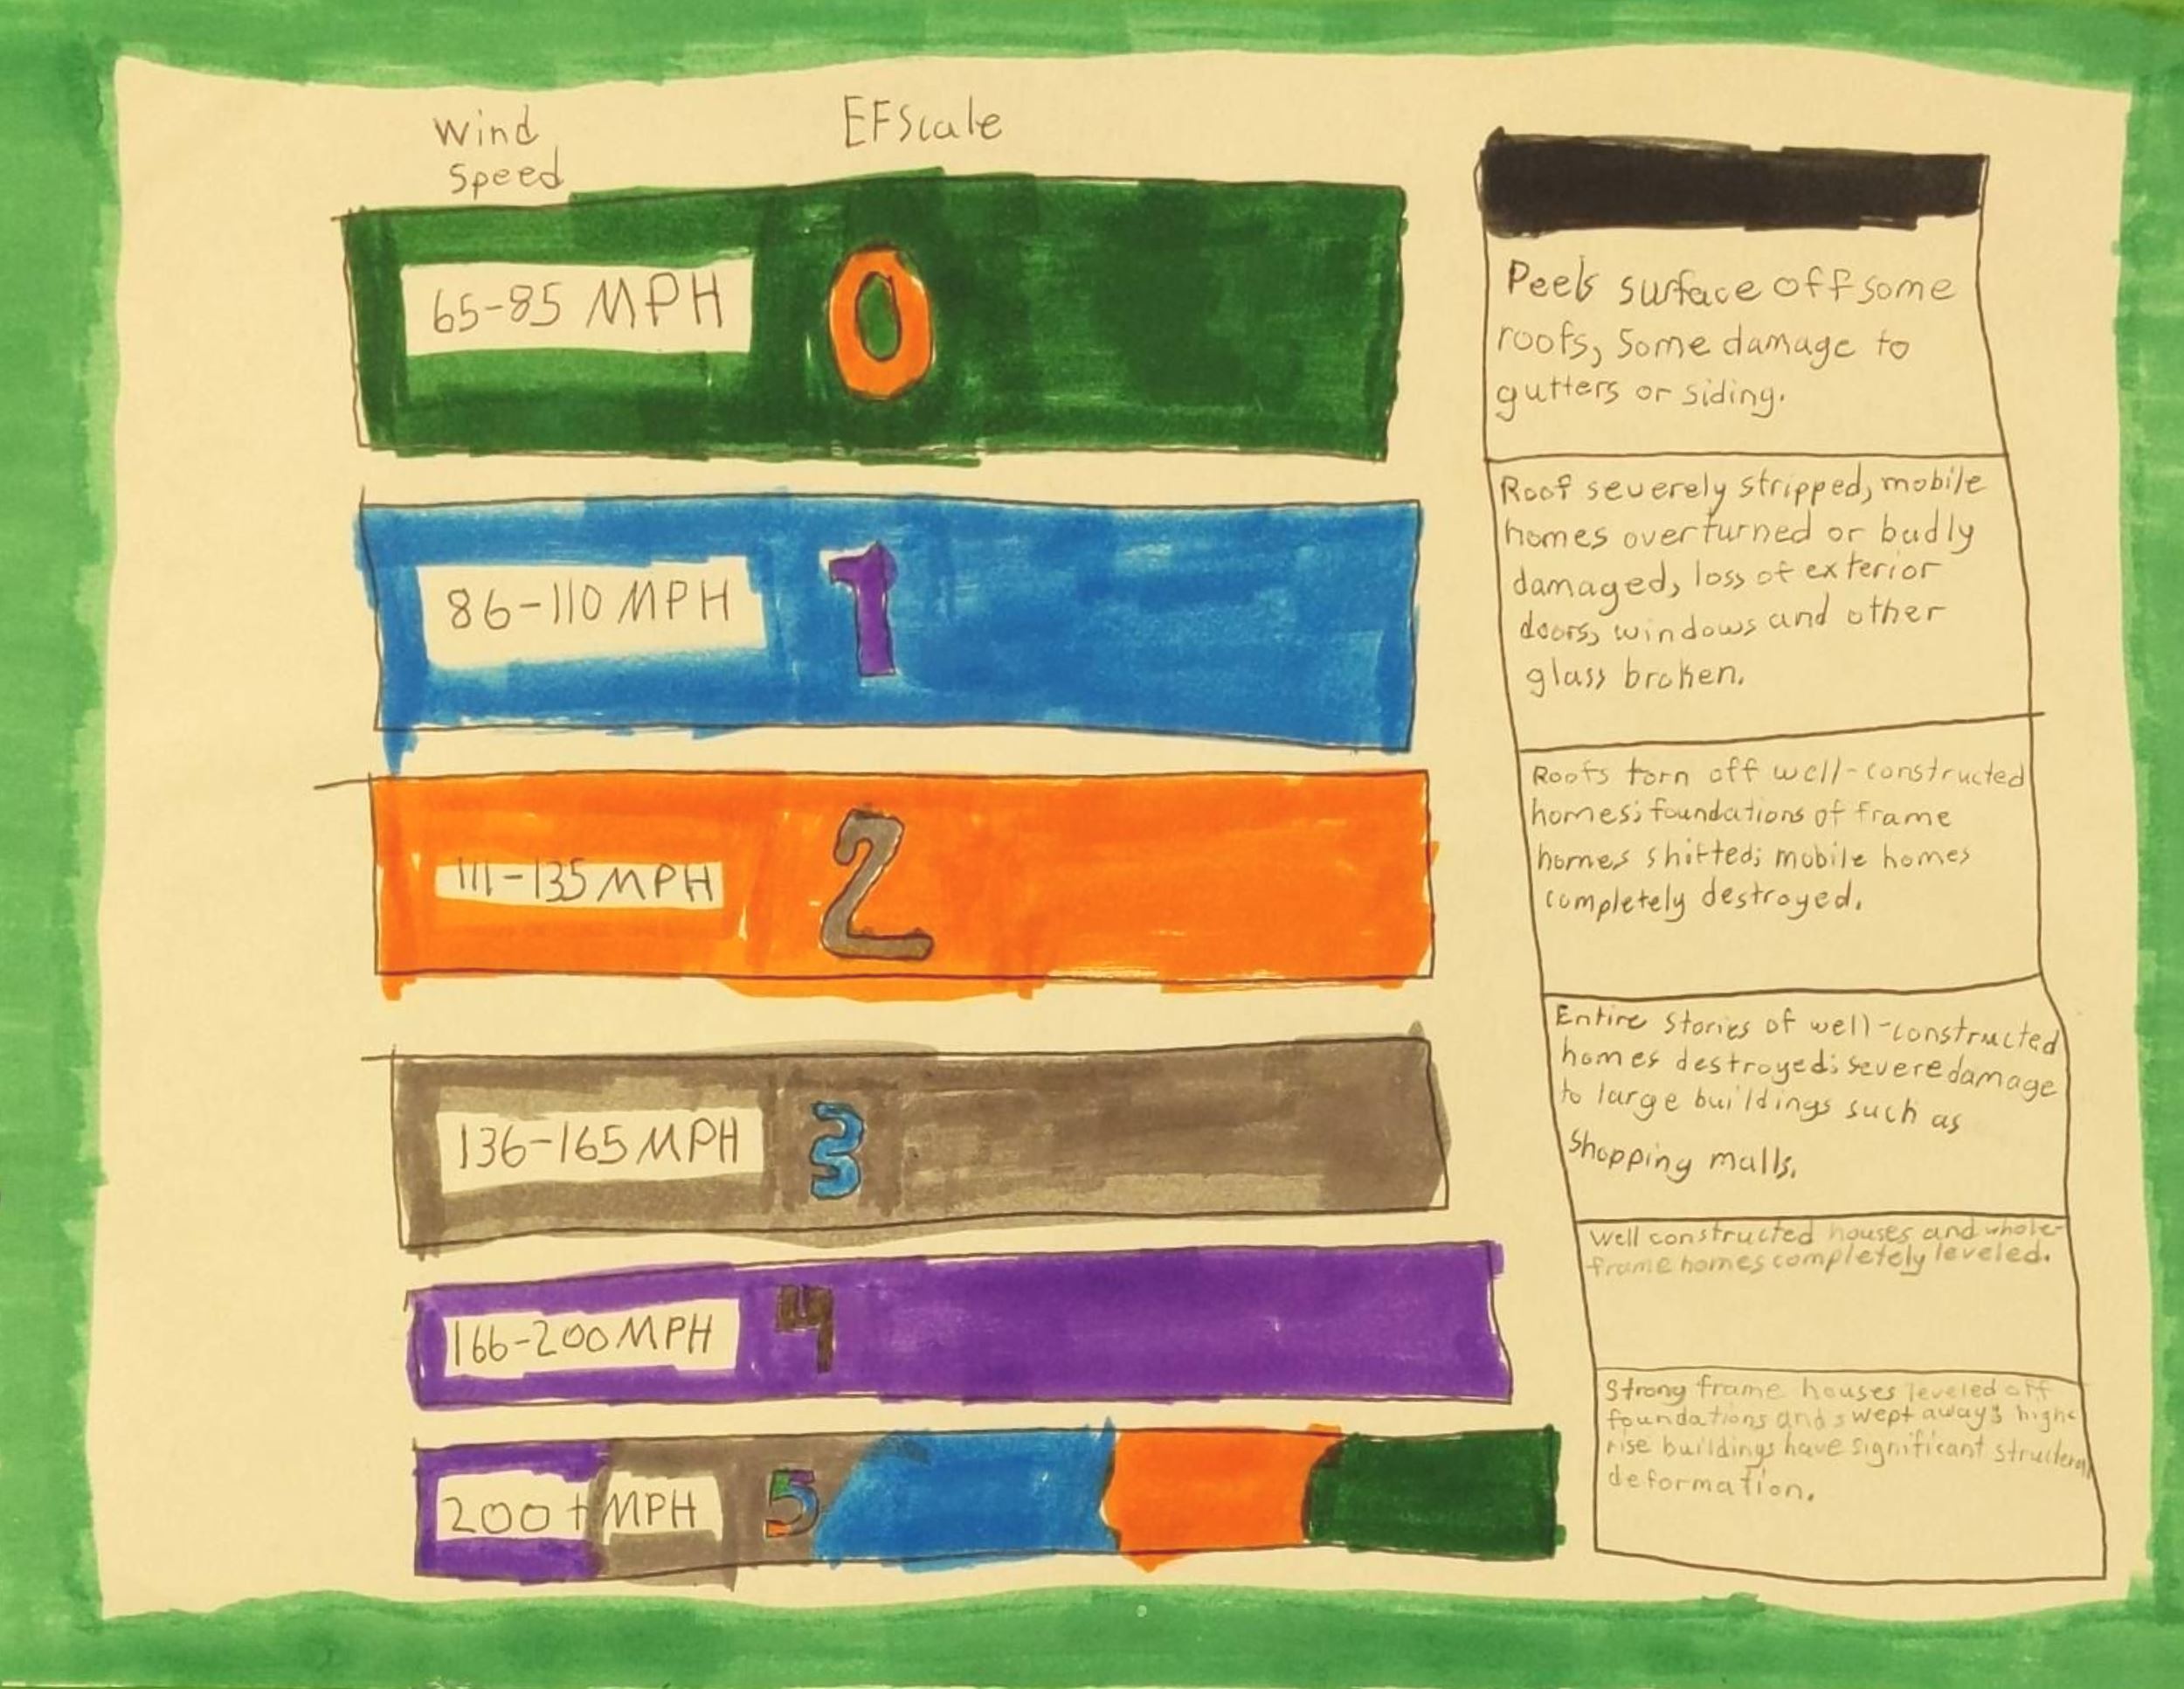 Wind
Speed
EFScale
65-85 MPH
0
Peels surface off some
roofs, Some damage to
gutters or siding.
86-110 MPH
1
Roof severely stripped, mobile
homes overturned or badly
damaged, loss of exterior
doors, windows and other
glass broken.
111-135 MPH
2
Roofs torn off well-constructed
homes; foundations of frame
homes shifted; mobile homes
completely destroyed.
136-165 MPH
3
Entire stories of well-constructed
homes destroyed; severe damage
to large buildings such as
Shopping malls.
166-200 MPH
4
Well constructed houses and whole-
frame homes completely leveled.
200+ MPH
5
Strong frame houses leveled off
foundations and swept away; high-
rise buildings have significant structeral
deformation.